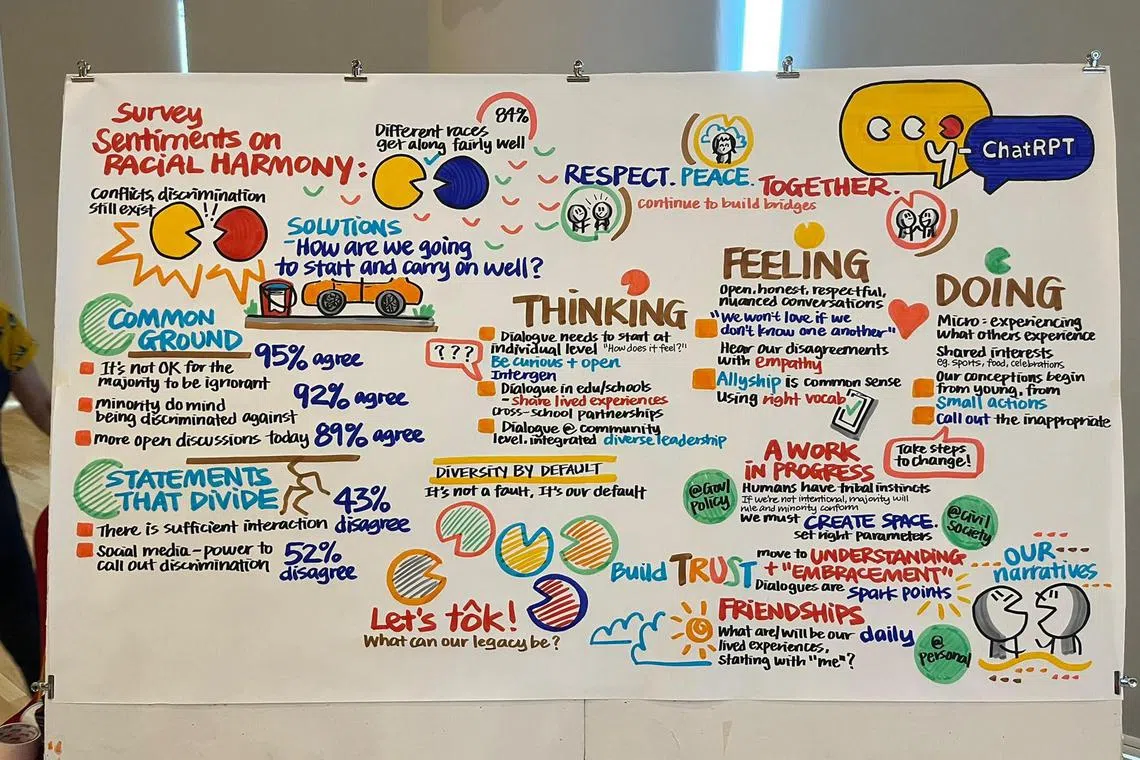 Survey
Sentiments on
RACIAL HARMONY:
84%
Different races
get along fairly well
Conflicts, discrimination
still exist
!!
SOLUTIONS
- How are we going
to start and carry on well?
RESPECT. PEACE. TOGETHER.
continue to build bridges
ChatRPT
COMMON
GROUND
95% agree
It's not OK for the
majority to be ignorant
92% agree
minority do mind
being discriminated against
more open discussions today 89% agree
STATEMENTS
THAT DIVIDE
43%
disagree
There is sufficient interaction
Social media - power to
call out discrimination
52%
disagree
THINKING
Dialogue needs to start at
individual level "How does it feel?"
? ? ?
Be curious + open
Intergen
Dialogue in edu/schools
- share lived experiences
cross-school partnerships
Dialogue @ community
level, integrated diverse leadership
DIVERSITY BY DEFAULT
It's not a fault, It's our default
Let's tôk!
What can our legacy be?
FEELING
Open, honest, respectful,
nuanced conversations
"We won't love if we
don't know one another"
Hear our disagreements
with empathy
Allyship is common sense
Using right vocab
DOING
Micro: experiencing
what others experience
Shared interests
eg. sports, food, celebrations
Our conceptions begin
from young, from
small actions
call out the inappropriate
Take steps
to change!
A WORK
IN PROGRESS
Humans have tribal instincts
If we're not intentional, majority will
rule and minority conform
We must CREATE SPACE.
set right parameters
@Govt
Policy
@Civil
Society
Build TRUST
move to UNDERSTANDING
+ "EMBRACEMENT"
Dialogues are spark points
FRIENDSHIPS
What are/will be our daily
lived experiences,
starting with "me"?
@
Personal
OUR
narratives